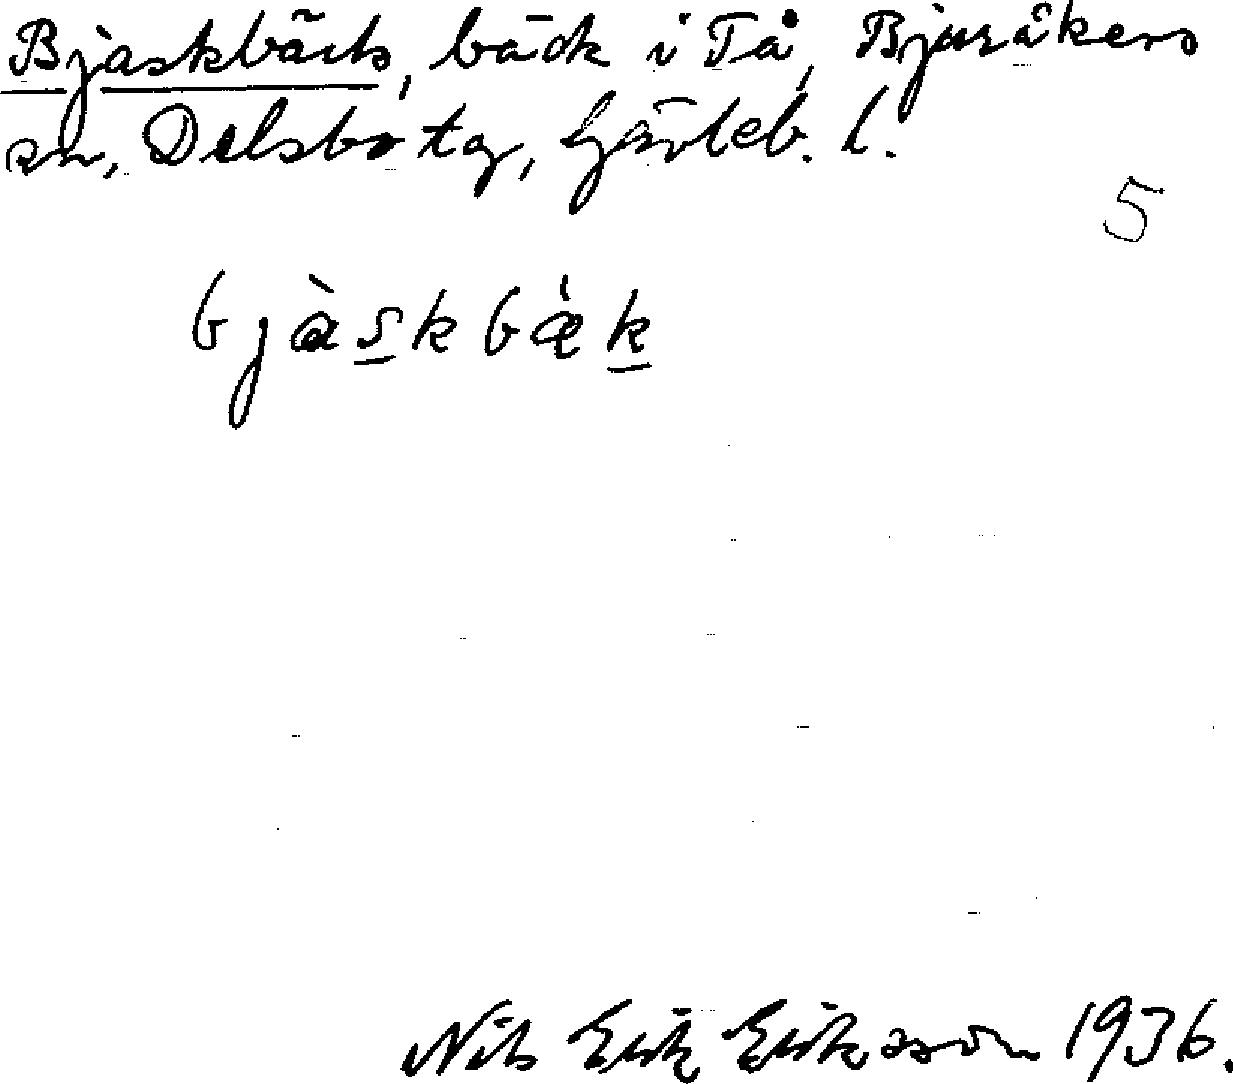 Bjaskbäck, bäck i Tå, Bjuråkers
sn, Delsbo tg, Gävleb. l.
5
bjàskbæ̀k
Nils Erik Eriksson 1936.